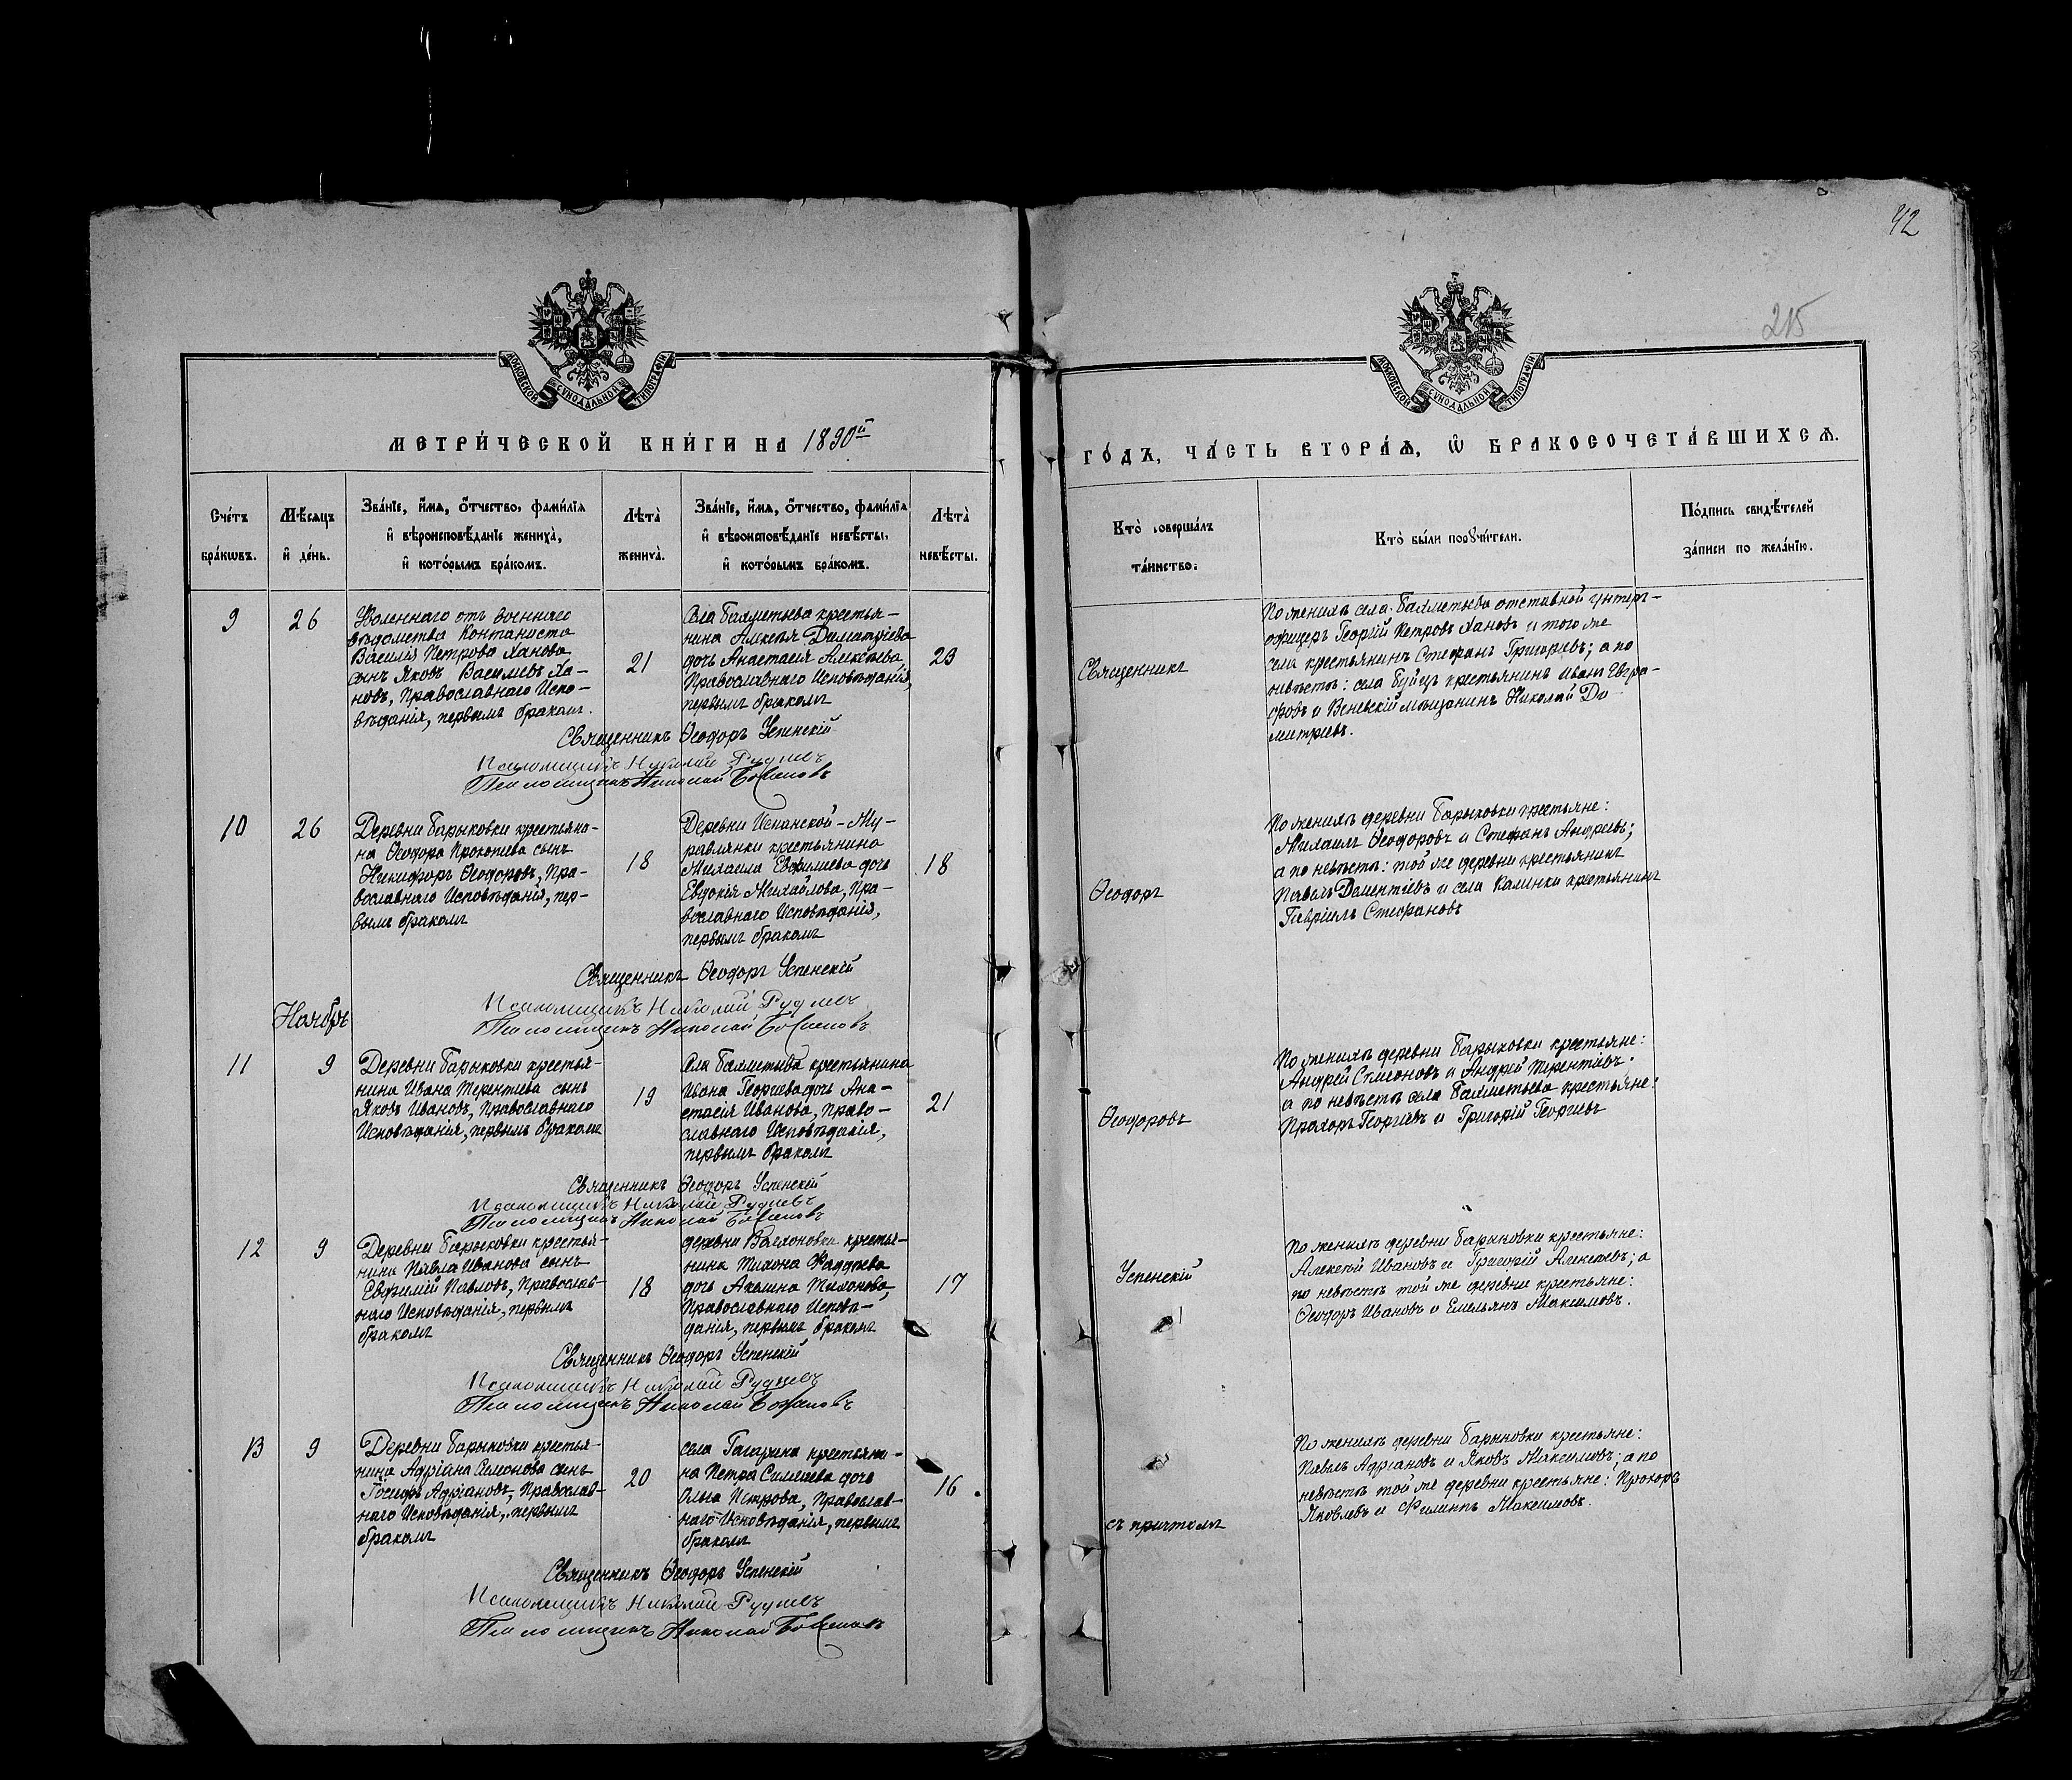 42
215
МОСКОВСКОЙ СѴНОДАЛЬНОЙ ТИПОГРАФІИ
МОСКОВСКОЙ СѴНОДАЛЬНОЙ ТИПОГРАФІИ
МЕТРИ́ЧЕСКОЙ КНИ́ГИ НА 1890й
ГО́ДЪ, ЧА́СТЬ ВТОРА́Ѧ, Ѽ БРАКОСОЧЕТА́ВШИХСѦ.
Сче́тъ
бра́кωвъ.
Мѣ́сѧцъ
и҆ де́нь.
Зва́нїе, и҆́мѧ, ѻ҆́тчество, фами́лїѧ
и҆ вѣроисповѣ́данїе жениха̀,
и҆ кото́рымъ бра́комъ.
Лѣта̀
жениха̀.
Зва́нїе, и҆́мѧ, ѻ҆́тчество, фами́лїѧ
и҆ вѣроисповѣ́данїе невѣ́сты,
и҆ кото́рымъ бра́комъ.
Лѣта̀
невѣ́сты.
Кто̀ соверша́лъ
та́инство.
Кто̀ бы́ли порꙋчи́тели.
По́дпись свидѣ́телей
за́писи по жела́нїю.
9
26
Уволеннаго отъ военнаго
вѣдомства Кантониста
Василія Петрова Ханова
сынъ Яковъ Васильевъ Ха-
новъ, Православнаго Испо-
вѣданія, первымъ бракомъ.
21
Села Бахметьева крестья-
нина Алексѣя Димитріева
дочь Анастасія Алексѣева,
Православнаго Исповѣданія,
первымъ бракомъ
23
Священникъ
По женихѣ села Бахметьева отставной унтеръ-
офицеръ Георгій Петровъ Хановъ и того же
села крестьянинъ Стефанъ Григорьевъ; а по
невѣстѣ: села Буйцъ крестьянинъ Иванъ Евгра-
фовъ и Веневскій мѣщанинъ Николай Ди
митріевъ.
Священникъ Ѳеодоръ Успенскій
Псаломщикъ Николай Рудневъ
Псаломщикъ Николай
10
26
Деревни Барыковки крестьяни-
на Ѳеодора Прокопіева сынъ
Никифоръ Ѳеодоровъ, Пра-
вославнаго Исповѣданія, пер-
вымъ бракомъ
18
Деревни Испанской-Му-
равлянки крестьянина
Михаила Евфимиева дочь
Евдокія Михайлова, Пра-
вославнаго Исповѣданія,
первымъ бракомъ
18
Ѳеодоръ
По женихѣ деревни Барыковки крестьяне:
Михаилъ Ѳеодоровъ и Стефанъ Андреевъ;
а по невѣстѣ: той же деревни крестьянинъ
Павелъ Дометіевъ и села Калинки крестьянинъ
Гавріилъ Стефановъ
Священникъ Ѳеодоръ Успенскій
Псаломщикъ Николай Рудневъ
Псаломщикъ Николай
Ноябрь
11
9
Деревни Барыковки крестья-
нина Ивана Терентіева сынъ
Яковъ Ивановъ, Православнаго
Исповѣданія, первымъ бракомъ
19
Села Бахметьева крестьянина
Ивана Георгіева дочь Ана-
стасія Иванова, Право-
славнаго Исповѣданія,
первымъ бракомъ
21
Ѳеодоровъ
По женихѣ деревни Барыковки крестьяне:
Андрей Симеоновъ и Андрей Терентіевъ
а по невѣстѣ села Бахметьева крестьяне:
Прохоръ Георгіевъ и Григорій Георгіевъ
Священникъ Ѳеодоръ Успенскій
Псаломщикъ Николай Рудневъ
Псаломщикъ Николай
12
9
Деревни Барыковки крестья-
нина Павла Иванова сынъ
Евфимій Павловъ, Православ-
наго Исповѣданія, первымъ
бракомъ
18
деревни крестья-
нина Тихона Фаддѣева
дочь Акилина Тихонова,
Православнаго Исповѣ-
данія, первымъ бракомъ
17
Успенскій
По женихѣ деревни Барыковки крестьяне:
Алексѣй Ивановъ и Григорій Алексѣевъ; а
по невѣстѣ той же деревни крестьяне:
Ѳеодоръ Ивановъ и Емельянъ Максимовъ.
Священникъ Ѳеодоръ Успенскій
Псаломщикъ Николай Рудневъ
Псаломщикъ Николай
13
9
Деревни Барыковки крестья-
нина Адріана Симонова сынъ
Іосифъ Адріановъ, Православ-
наго Исповѣданія, первымъ
бракомъ
20
села Гагарина крестьяни-
на Петра дочь
Ольга Петрова, Православ-
наго Исповѣданія, первымъ
бракомъ
16
съ причтомъ
По женихѣ деревни Барыковки крестьяне:
Павелъ Адріановъ и Яковъ Максимовъ; а по
невѣстѣ той же деревни крестьяне: Прохоръ
Яковлевъ и Филиппъ Максимовъ.
Священникъ Ѳеодоръ Успенскій
Псаломщикъ Николай Рудневъ
Псаломщикъ Николай